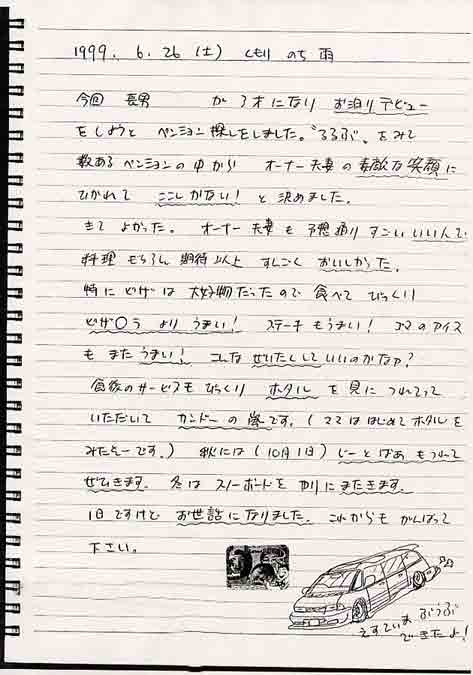 1999. 6. 26 (土) くもり のち 雨
今回 長男 が 3才になり お泊りデビュー
をしようと ペンション探しをしました。"るるぶ"をみて
数あるペンションの中から オーナー夫妻の素敵な笑顔に
ひかれて ここしかない! と決めました。
きて よかった。 オーナー夫妻も 予想通り すごい いい人で
料理 もちろん 期待以上 すんごく おいしかった。
特に ピザは 大好物だったので 食べて びっくり
ピザ〇ラ より うまい! ステーキ もうまい! ゴマのアイス
も また うまい! こんな ぜいたくして いいのかなァ?
食後のサービスもびっくり ホタル を 見に つれてって
いただいて カンドーの嵐です。(ママははじめてホタルを
みたそーです。) 秋には (10月1日) じーとばあ もつれて
ぜひきます。 冬は スノーボードを やりにまたきます。
1日ですけど お世話になりました。これからも がんばって
下さい。
えすてぃま ぶうぶ
できたよ!